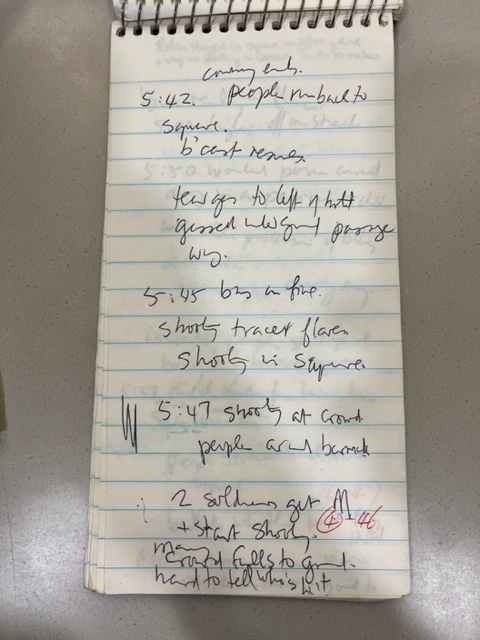 5:42. people run back to
square.
b'cast resumes.
tear gas to left of hotel
gassed underground passage
way.
5:45 bus on fire.
shooting tracer flares
shooting in square
5:47 shooting at crowd
people around
2 soldiers get
+ start shooting.
④ 46
many
crowd falls to ground.
hard to tell who's hit